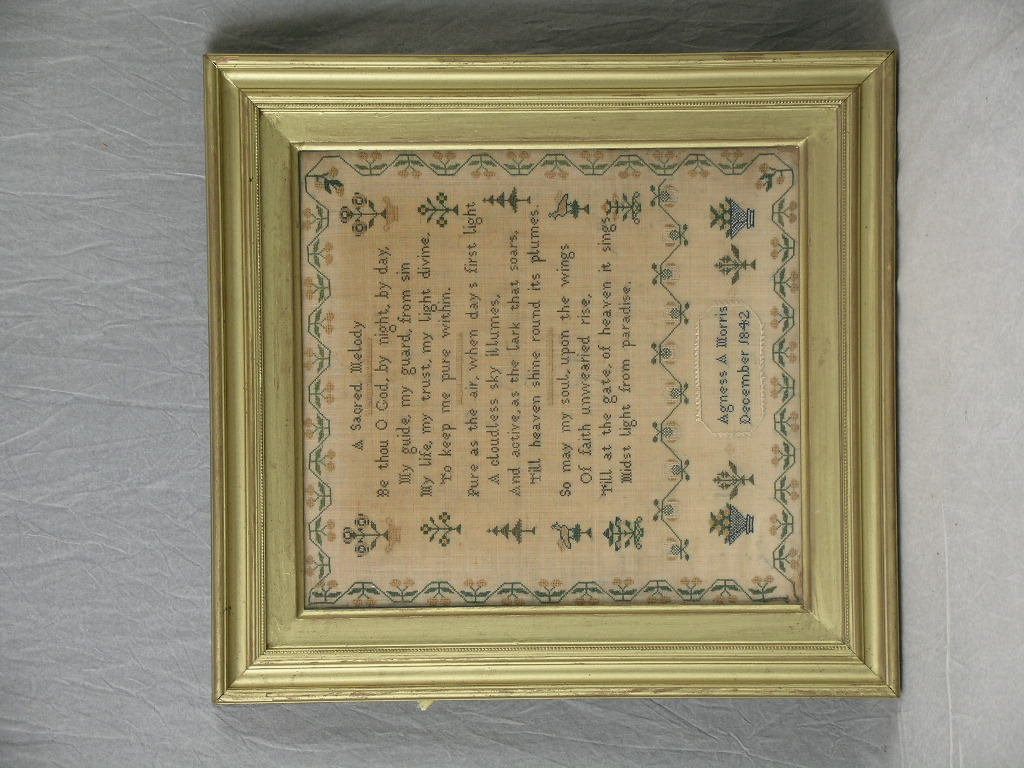 A Sacred Melody
Be thou O God, by night, by day,
My guide, my guard, from sin
My life, my trust, my light divine,
To keep me pure within.
Pure as the air, when day s first light
A cloudless sky illumes,
And active, as the lark that soars,
Till heaven shine round its plumes.
So may my soul, upon the wings
Of faith unwearied rise,
Till at the gate, of heaven it sings
Midst light from paradise.
Agness A Morris
December 1842